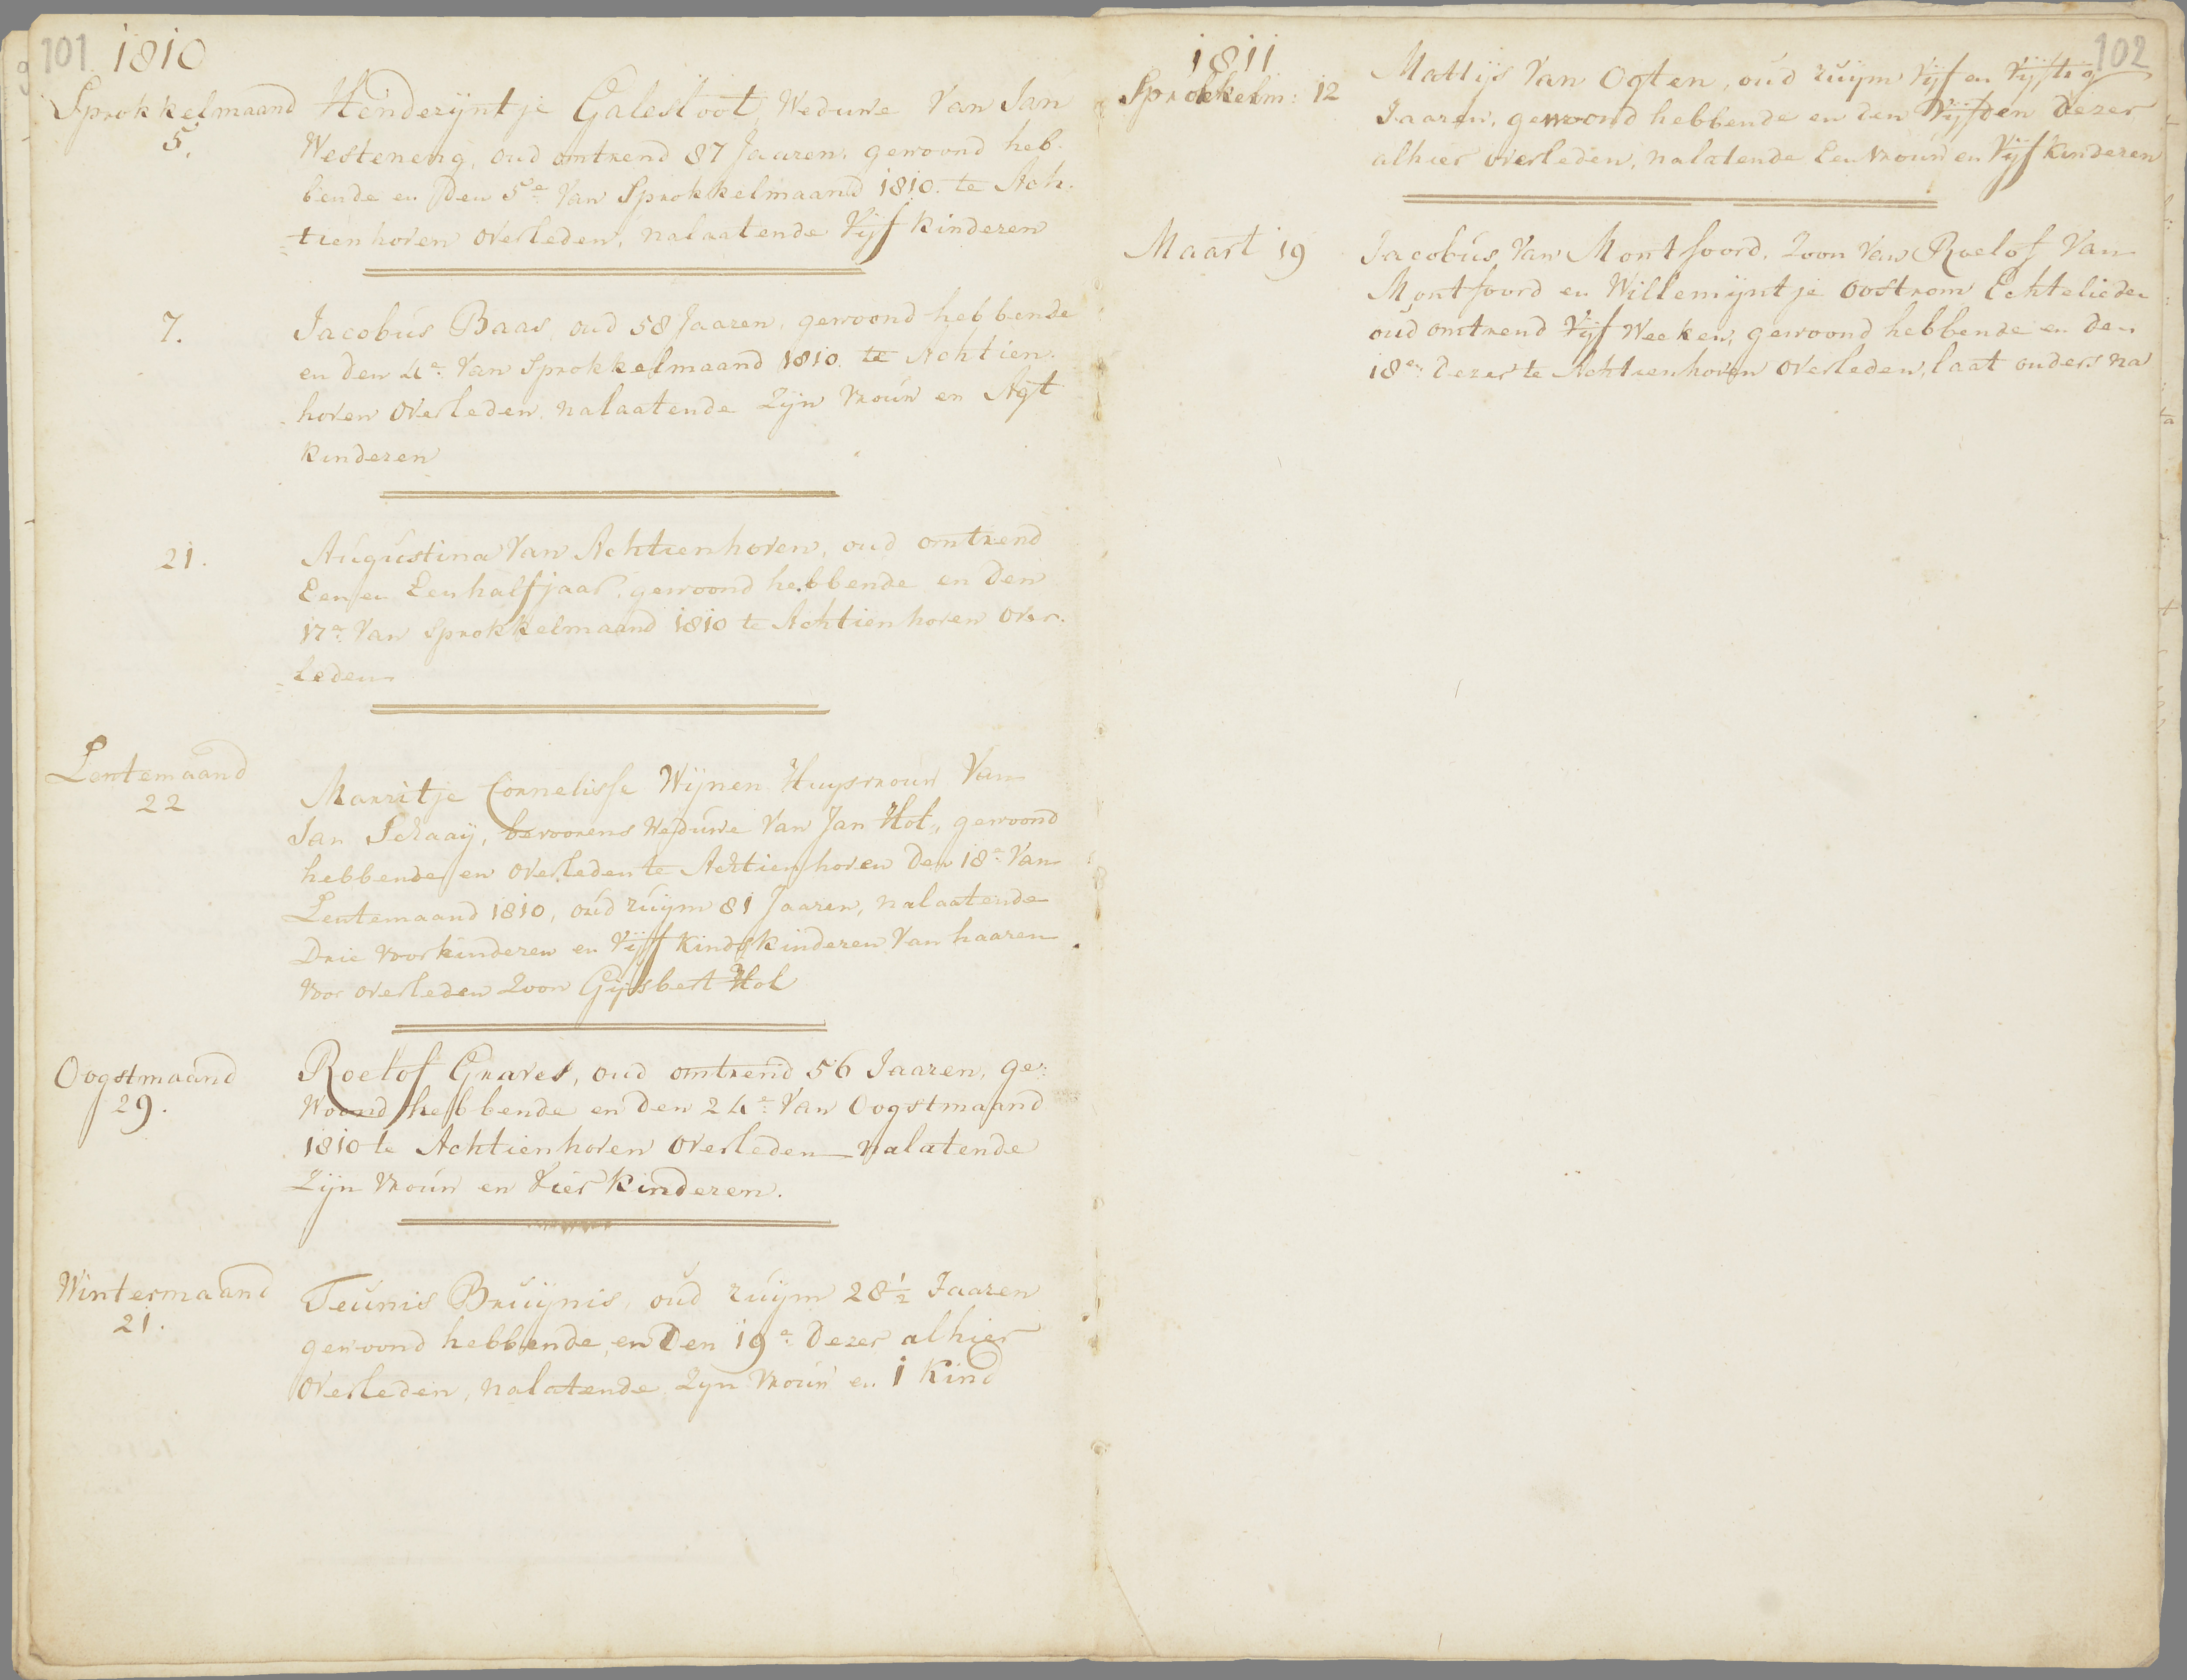 101 1810
Sprokkelmaand
5.
Henderijntje Galesloot, Weduwe Van Jan
Westeneng, oud omtrend 87 Jaaren, gewoond heb-
bende en den 5e Van Sprokkelmaand 1810. te Ach-
tienhoven overleden, nalaatende Vijf kinderen
7.
Jacobus Baas, oud 58 Jaaren, gewoond hebbende
en den 4e Van Sprokkelmaand 1810. te Achtien-
hoven overleden, nalaatende Zijn Vrouw en Agt
kinderen
21.
Augustina Van Achtienhoven, oud omtrend
Een en Een half jaar, gewoond hebbende en den
17e Van Sprokkelmaand 1810 te Achtienhoven over-
leden
Lentemaand
22
Marritje Cornelisse Wijnen Huysvrouw Van
Jan Schaaij, bevoorens Weduwe Van Jan Hol, gewoond
hebbende en overleden te Achtienhoven den 18e Van
Lentemaand 1810, oud ruijm 81 Jaaren, nalaatende
Drie voorkinderen en Vijf Kindskinderen Van haaren
voor overleden Zoon Gijsbert Hol
Oogstmaand
29.
Roelof Graves, oud omtrend 56 Jaaren, ge-
woond hebbende en den 24e Van Oogstmaand
1810 te Achtienhoven overleden nalatende
Zijn Vrouw en Vier kinderen.
Wintermaand
21.
Teunis Bruijnis, oud ruijm 28 1/2 Jaaren
gewoond hebbende, en Den 19e Dezer alhier
overleden, nalatende Zyn Vrouw en 1 Kind
102
1811
Sprokkelm: 12
Mattijs Van Ogten, oud ruijm Vijf en Vijftig
Jaaren, gewoond hebbende en den Vijfden Dezer
alhier overleden, nalatende Een vrouw en Vijf Kinderen
Maart 19
Jacobus Van Montfoord, Zoon Van Roelof Van
Montfoord en Willemijntje Oostrom Echtelieden
oud omtrend Vijf Weeken, gewoond hebbende en den
18en Dezer te Achtienhoven overleden, laat ouders na